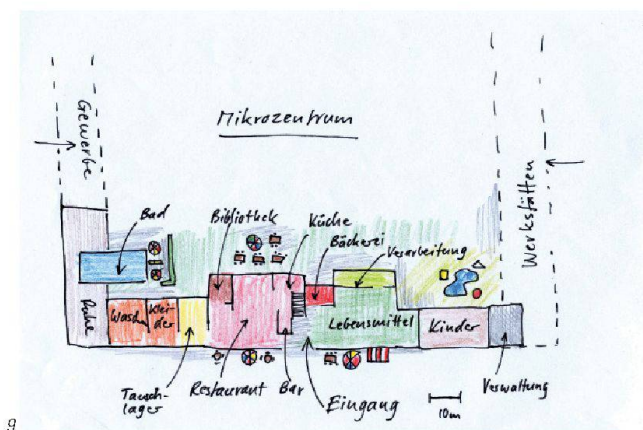 Mikrozentrum
Gewerbe
Werkstätten
Bad
Bibliothek
Küche
Bäckerei
Verarbeitung
Ruhe
Wasch
Klei-
der
Lebensmittel
Kinder
Tausch-
lager
Restaurant
Bar
Eingang
10m
Verwaltung
9